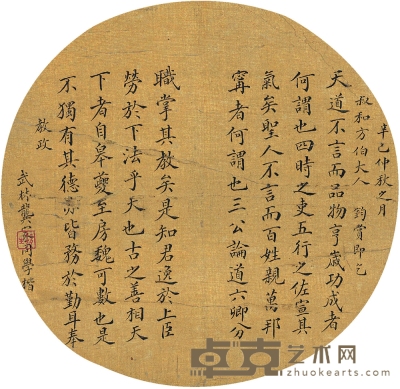 辛巳仲秋之月
叔和方伯大人 鈞賞即乞
天道不言而品物亨歲功成者
何謂也四時之吏五行之佐宣其
氣矣聖人不言而百姓親萬邦
寧者何謂也三公論道六卿分
職掌其教矣是知君逸於上臣
勞於下法乎天也古之善相天
下者自皋夔至房魏可數也是
不獨有其德亦皆務於勤耳奉
教政
武林龔
同學楷
卓克艺术网
www.zhuokearts.com